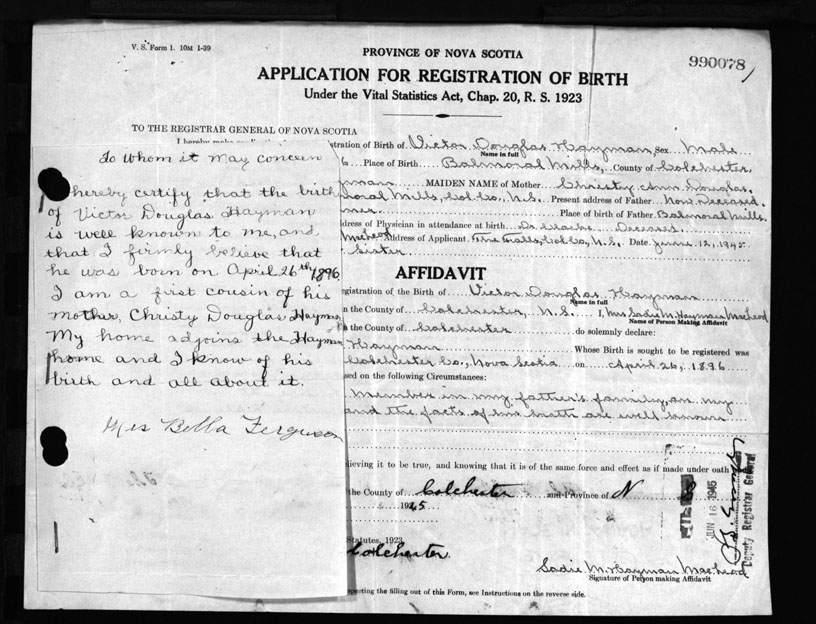 V. S. Form 1. 10M 1-39
PROVINCE OF NOVA SCOTIA
990078
APPLICATION FOR REGISTRATION OF BIRTH
Under the Vital Statistics Act, Chap. 20, R. S. 1923
TO THE REGISTRAR GENERAL OF NOVA SCOTIA
I hereby make
To Whom it May Concern
I hereby certify that the birth
of Victor Douglas Hayman
is well known to me, and
that I firmly believe that
he was born on April 26th 1896
I am a first cousin of his
mother, Christy Douglas Hayman
My home adjoins the Hayman
home and I know of his
birth and all about it.
Mrs Bella Ferguson
stration of Birth of Victor Douglas Hayman, Sex Male
Name in full
6 Place of Birth Balmoral Mills, County of Colchester
yman MAIDEN NAME of Mother Christy Ann Douglas.
moral Mills, Col. Co., N.S. Present address of Father Now Deceased.
mer Place of birth of Father Balmoral Mills
ddress of Physician in attendance at birth Dr Deceased
MacLeod Address of Applicant Falls, Col. Co, N.S. Date June 12, 1945
Sister
AFFIDAVIT
egistration of the Birth of Victor Douglas Hayman
Name in full
n the County of Colchester, N.S. I, Mrs Sadie M. Hayman MacLeod
Name of Person Making Affidavit
n the County of Colchester do solemnly declare:
Hayman Whose Birth is sought to be registered was
Colchester Co., Nova Scotia on April 26, 1896
sed on the following Circumstances:
Member in my father's family, on my
and the facts of his birth are well known
lieving it to be true, and knowing that it is of the same force and effect as if made under oath
the County of Colchester and Province of N S
1945
Statutes, 1923
Colchester.
JUN 16 1945
Deputy Registrar General
Sadie M. Hayman MacLeod
Signature of Person making Affidavit
specting the filling out of this Form, see Instructions on the reverse side.